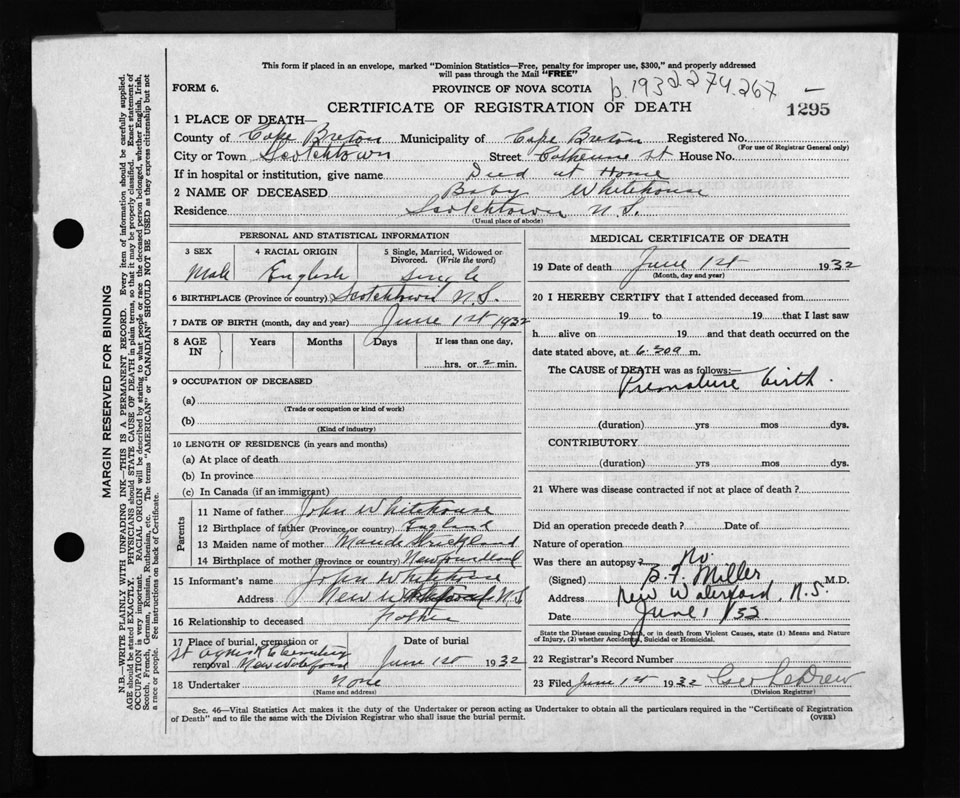 This form if placed in an envelope, marked "Dominion Statistics—Free, penalty for improper use, $300," and properly addressed
will pass through the Mail "FREE"
FORM 6.
PROVINCE OF NOVA SCOTIA
b.1932.274.267
CERTIFICATE OF REGISTRATION OF DEATH
1295
1 PLACE OF DEATH—
County of Cape Breton Municipality of Cape Breton Registered No.
(For use of Registrar General only)
City or Town Scotchtown Street Catherine St House No.
If in hospital or institution, give name Died at Home
2 NAME OF DECEASED Baby Whitehouse
Residence Scotchtown N.S.
(Usual place of abode)
PERSONAL AND STATISTICAL INFORMATION
3 SEX
Male
4 RACIAL ORIGIN
English
5 Single, Married, Widowed or
Divorced. (Write the word)
Single
6 BIRTHPLACE (Province or country) Scotchtown N.S.
7 DATE OF BIRTH (month, day and year) June 1st 1932
8 AGE
IN
Years
Months
Days
If less than one day,
hrs. or 2 min.
9 OCCUPATION OF DECEASED
(a)
(Trade or occupation or kind of work)
(b)
(Kind of industry)
10 LENGTH OF RESIDENCE (in years and months)
(a) At place of death
(b) In province
(c) In Canada (if an immigrant)
Parents
11 Name of father John Whitehouse
12 Birthplace of father (Province or country) England
13 Maiden name of mother Maude Strickland
14 Birthplace of mother (Province or country) Newfoundland
15 Informant's name John Whitehouse
Address New Waterford N.S
16 Relationship to deceased Father
17 Place of burial, cremation or
St Agnes R C Cemetery
removal New Waterford
Date of burial
June 1st 1932
18 Undertaker None
(Name and address)
MEDICAL CERTIFICATE OF DEATH
19 Date of death June 1st 1932
(Month, day and year)
20 I HEREBY CERTIFY that I attended deceased from
19 to 19 that I last saw
h alive on 19 and that death occurred on the
date stated above, at 6.30a m.
The CAUSE of DEATH was as follows:—
Premature birth.
(duration) yrs mos dys.
CONTRIBUTORY
(duration) yrs mos dys.
21 Where was disease contracted if not at place of death?
Did an operation precede death? Date of
Nature of operation
Was there an autopsy? No.
(Signed) B.F. Miller M.D.
Address New Waterford, N.S.
Date June 1/32
State the Disease causing Death, or in death from Violent Causes, state (1) Means and Nature
of Injury, (2) whether Accidental, Suicidal or Homicidal.
22 Registrar's Record Number
23 Filed June 1st 1932 Geo LeDrew
(Division Registrar)
Sec. 46—Vital Statistics Act makes it the duty of the Undertaker or person acting as Undertaker to obtain all the particulars required in the "Certificate of Registration
of Death" and to file the same with the Division Registrar who shall issue the burial permit.
(OVER)
MARGIN RESERVED FOR BINDING
N.B.—WRITE PLAINLY WITH UNFADING INK—THIS IS A PERMANENT RECORD. Every item of information should be carefully supplied.
AGE should be stated EXACTLY. PHYSICIANS should STATE CAUSE OF DEATH in plain terms, so that it may be properly classified. Exact statement of
OCCUPATION is very important. RACIAL ORIGIN will be described by stating to what people or race the deceased person belonged, whether English, Irish,
Scotch, French, German, Russian, Ruthenian, etc. The terms "AMERICAN" or "CANADIAN" SHOULD NOT BE USED as they express citizenship but not
a race or people. See instructions on back of Certificate.